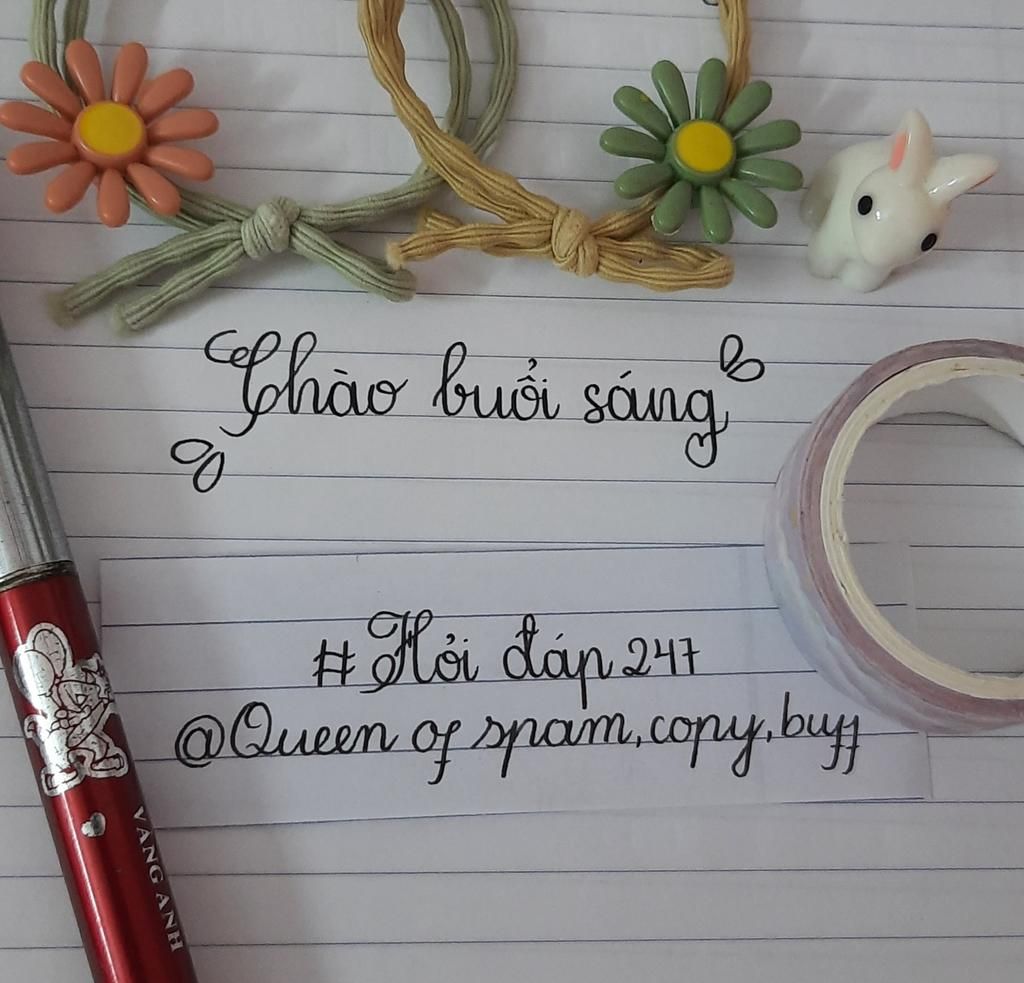 Chào buổi sáng
#Hỏi đáp 247
@Queen of spam, copy, buff
VÀNG ANH